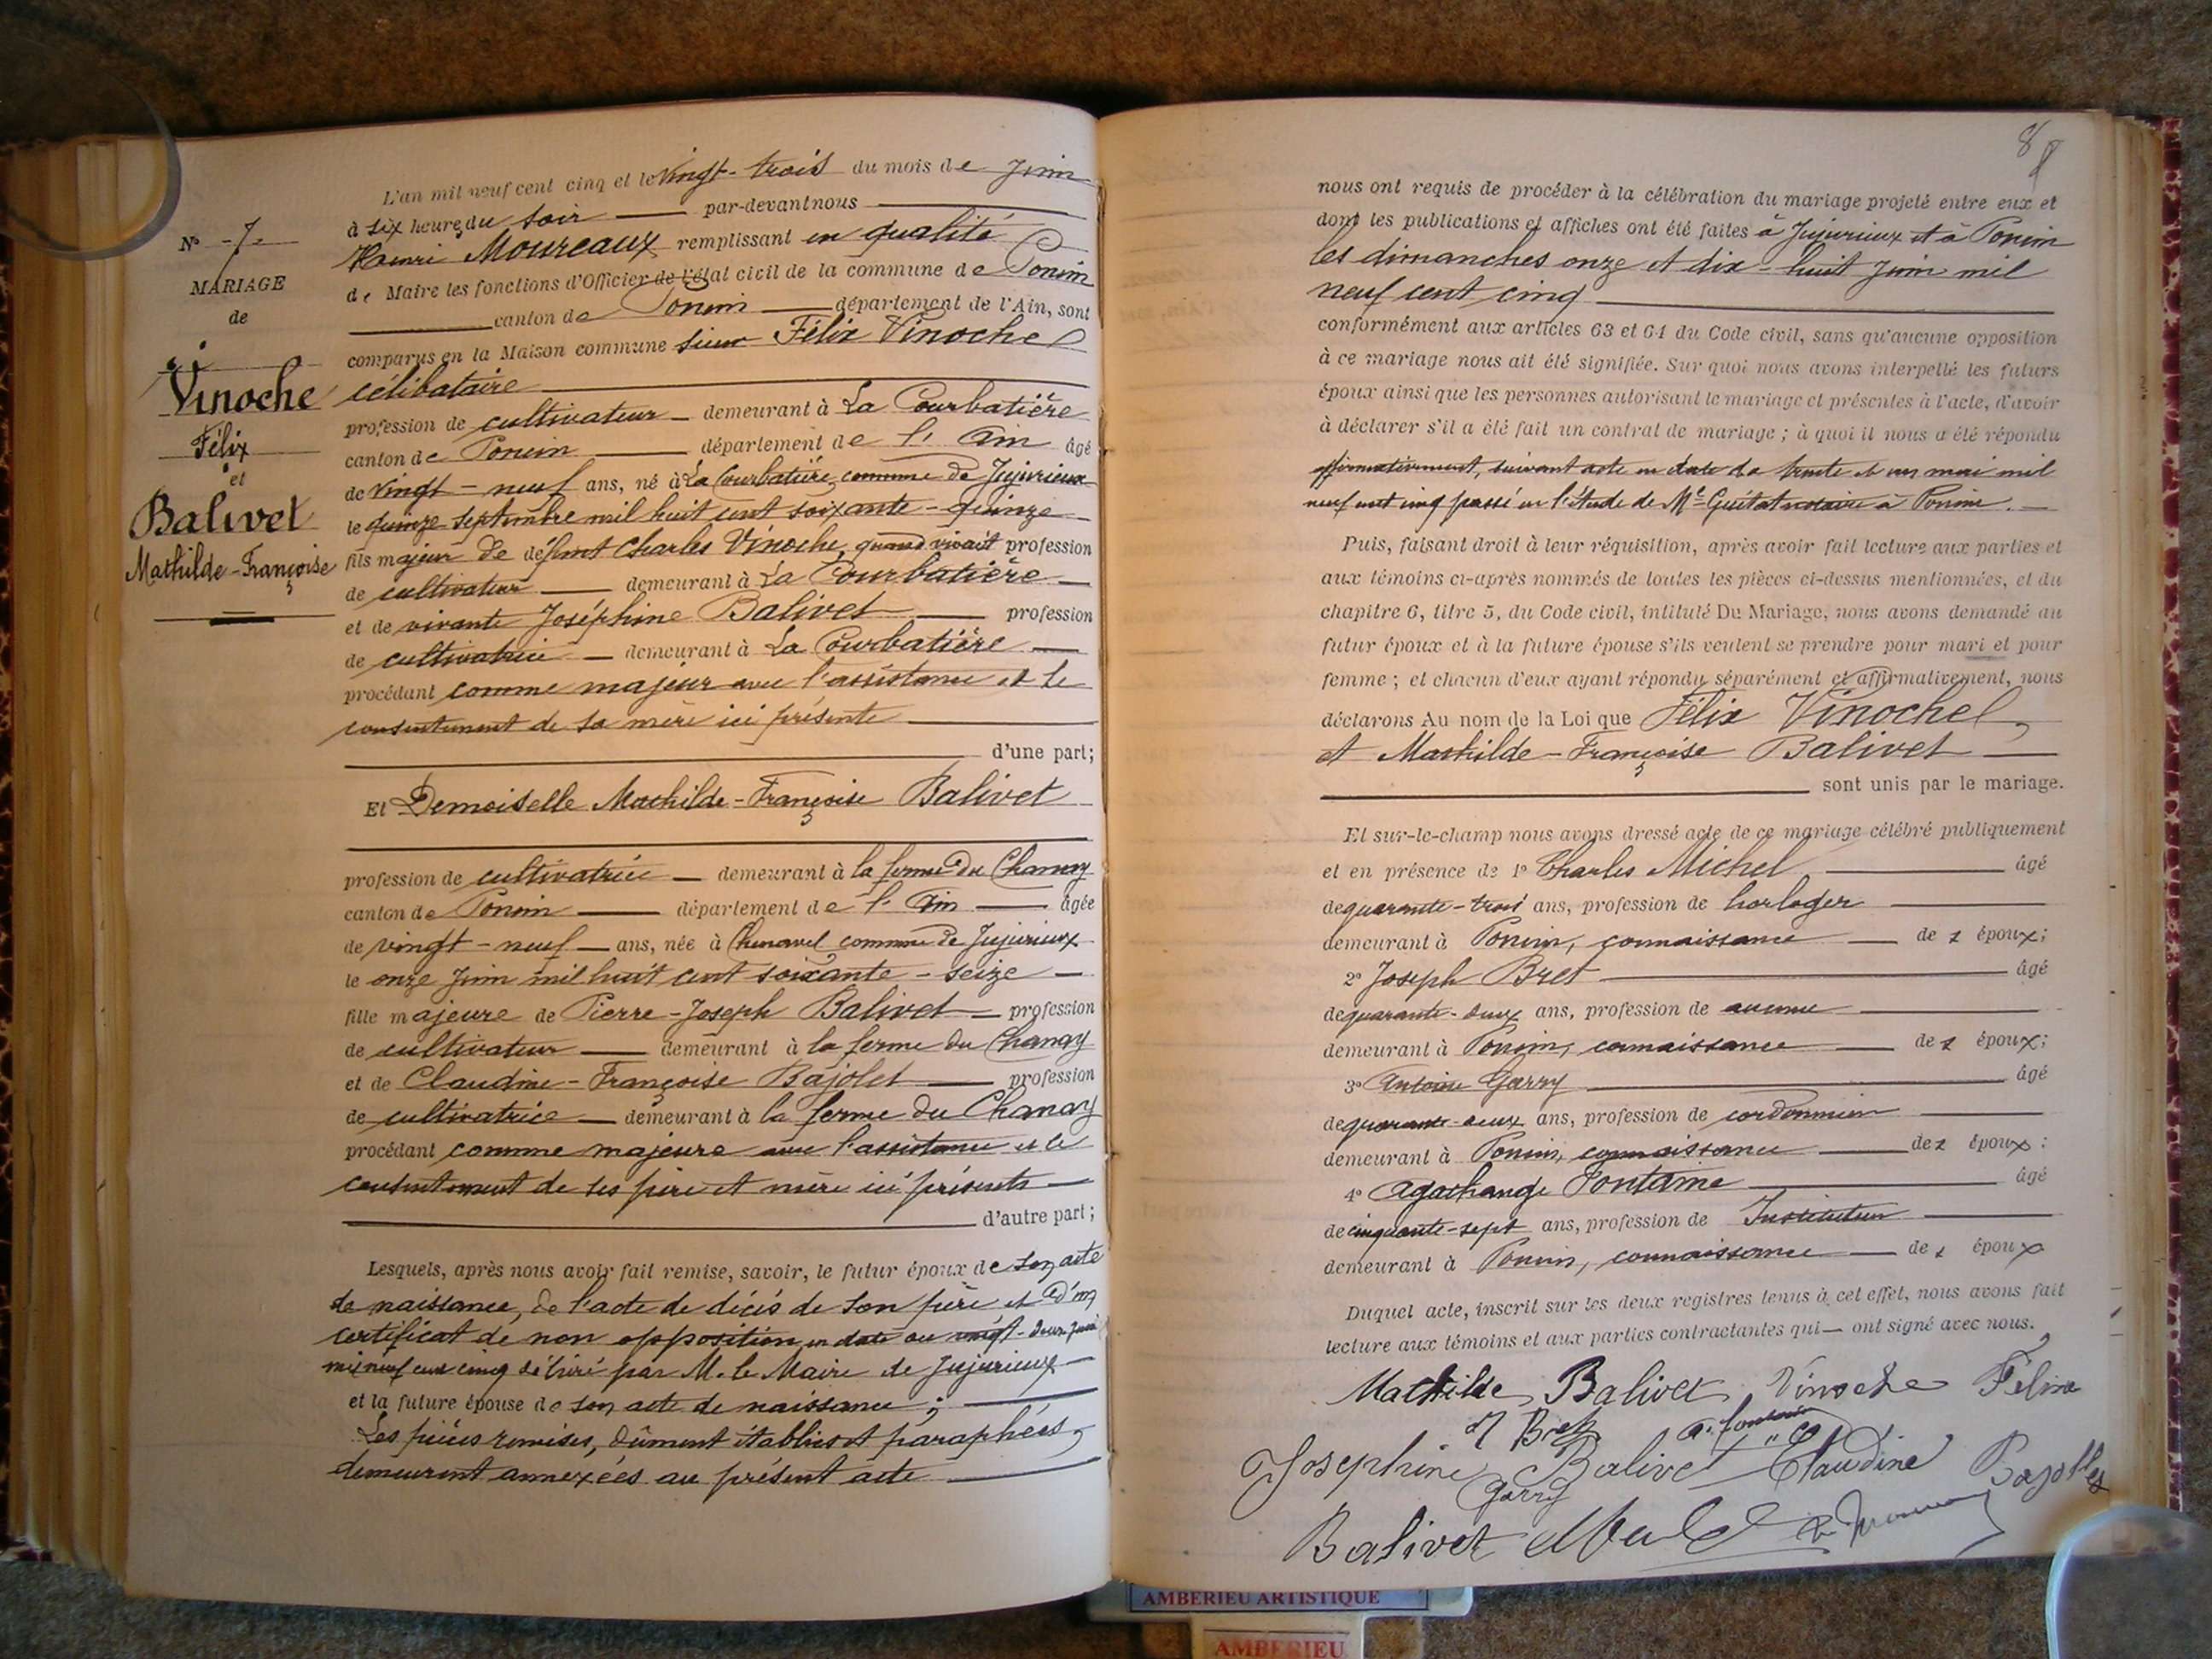 L'an mil neuf cent cinq et le vingt-trois du mois de Juin
à six heures du soir par-devant nous
Henri Moureaux remplissant en qualité
de Maire les fonctions d'Officier de l'état civil de la commune de Poncin
canton de Poncin département de l'Ain, sont
comparus en la Maison commune sieur Félix Vinoche
célibataire
profession de cultivateur demeurant à La Courbatière
canton de Poncin département de l'Ain âgé
de vingt-neuf ans, né à La Courbatière, commune de Jujurieux
le quinze septembre mil huit cent soixante-quinze
fils majeur de défunt Charles Vinoche, quand vivait profession
de cultivateur demeurant à La Courbatière
et de vivante Joséphine Balivet profession
de cultivatrice demeurant à La Courbatière
procédant comme majeur avec l'assistance et le
consentement de sa mère ici présente
d'une part;
Et Demoiselle Mathilde-Françoise Balivet
profession de cultivatrice demeurant à la ferme du Chanay
canton de Poncin département de l'Ain âgée
de vingt-neuf ans, née à Chenavel commune de Jujurieux
le onze Juin mil huit cent soixante-seize
fille majeure de Pierre-Joseph Balivet profession
de cultivateur demeurant à la ferme du Chanay
et de Claudine-Françoise Bajolet profession
de cultivatrice demeurant à la ferme du Chanay
procédant comme majeure avec l'assistance et le
consentement de ses père et mère ici présents
d'autre part;
Lesquels, après nous avoir fait remise, savoir, le futur époux de son acte
de naissance, de l'acte de décès de son père et d'un
certificat de non opposition en date du vingt-deux juin
mil neuf cent cinq délivré par M. le Maire de Jujurieux
et la future épouse de son acte de naissance;
Les pièces remises, dûment établies et paraphées,
demeurent annexées au présent acte
N° 7
MARIAGE
de
Vinoche
Félix
et
Balivet
Mathilde-Françoise
8
nous ont requis de procéder à la célébration du mariage projeté entre eux et
dont les publications et affiches ont été faites à Jujurieux et à Poncin
les dimanches onze et dix-huit Juin mil
neuf cent cinq
conformément aux articles 63 et 64 du Code civil, sans qu'aucune opposition
à ce mariage nous ait été signifiée. Sur quoi nous avons interpellé les futurs
époux ainsi que les personnes autorisant le mariage et présentes à l'acte, d'avoir
à déclarer s'il a été fait un contrat de mariage; à quoi il nous a été répondu
affirmativement, suivant acte en date du trente et un mai mil
neuf cent cinq passé en l'étude de Me Guitat notaire à Poncin.
Puis, faisant droit à leur réquisition, après avoir fait lecture aux parties et
aux témoins ci-après nommés de toutes les pièces ci-dessus mentionnées, et du
chapitre 6, titre 5, du Code civil, intitulé Du Mariage, nous avons demandé au
futur époux et à la future épouse s'ils veulent se prendre pour mari et pour
femme; et chacun d'eux ayant répondu séparément et affirmativement, nous
déclarons Au nom de la Loi que Félix Vinoche
et Mathilde-Françoise Balivet
sont unis par le mariage.
Et sur-le-champ nous avons dressé acte de ce mariage célébré publiquement
et en présence de 1° Charles Michel âgé
de quarante-trois ans, profession de horloger
demeurant à Poncin, connaissance des époux;
2° Joseph Bret âgé
de quarante-deux ans, profession de aucune
demeurant à Poncin, connaissance des époux;
3° Antoine Garry âgé
de quarante-deux ans, profession de cordonnier
demeurant à Poncin, connaissance des époux:
4° Agathange Fontaine âgé
de cinquante-sept ans, profession de Instituteur
demeurant à Poncin, connaissance des époux
Duquel acte, inscrit sur les deux registres tenus à cet effet, nous avons fait
lecture aux témoins et aux parties contractantes qui ont signé avec nous.
Mathilde Balivet Vinoche Félix
J Bret a. fontaine
Josephine Balivet Claudine Bajolles
Garry
Balivet
AMBERIEU ARTISTIQUE
AMBERIEU